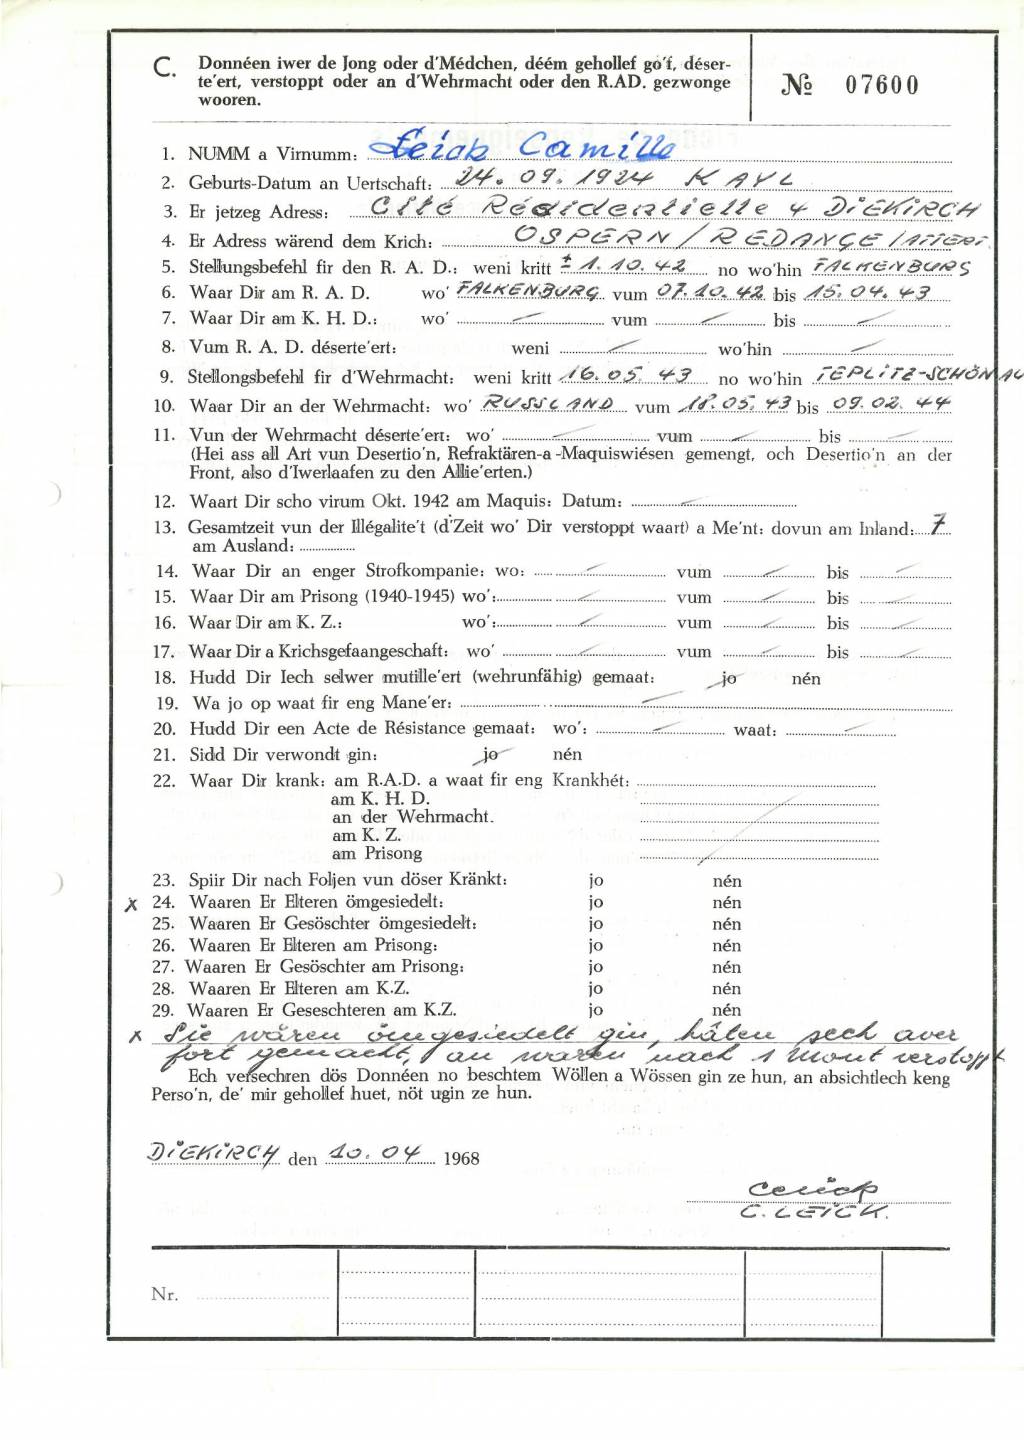 C. Donnéen iwer de Jong oder d'Médchen, déém gehollef go'f, déser-
te'ert, verstoppt oder an d'Wehrmacht oder den R.AD. gezwonge
wooren.
№ 07600
1. NUMM a Virnumm: Leick Camille
2. Geburts-Datum an Uertschaft: 24. 09. 1924 KAYL
3. Er jetzeg Adress: Cité Résidentielle 4 DIEKIRCH
4. Er Adress wärend dem Krich: OSPERN / REDANGE / ATTERT
5. Stellungsbefehl fir den R. A. D.: weni kritt ± 1. 10. 42 no wo'hin FALKENBURG
6. Waar Dir am R. A. D. wo' FALKENBURG vum 07. 10. 42 bis 15. 04. 43
7. Waar Dir am K. H. D.: wo' — vum — bis —
8. Vum R. A. D. déserte'ert: weni — wo'hin —
9. Stellongsbefehl fir d'Wehrmacht: weni kritt 16. 05. 43 no wo'hin TEPLITZ-SCHÖNAU
10. Waar Dir an der Wehrmacht: wo' RUSSLAND vum 18. 05. 43 bis 09. 02. 44
11. Vun der Wehrmacht déserte'ert: wo' — vum — bis —
(Hei ass all Art vun Desertio'n, Refraktären-a -Maquiswiésen gemengt, och Desertio'n an der
Front, also d'Iwerlaafen zu den Allie'erten.)
12. Waart Dir scho virum Okt. 1942 am Maquis: Datum: —
13. Gesamtzeit vun der Illégalite't (d'Zeit wo' Dir verstoppt waart) a Me'nt: dovun am Inland: 7
am Ausland:
14. Waar Dir an enger Strofkompanie: wo: — vum — bis —
15. Waar Dir am Prisong (1940-1945) wo': — vum — bis —
16. Waar Dir am K. Z.: wo': — vum — bis —
17. Waar Dir a Krichsgefaangeschaft: wo' — vum — bis —
18. Hudd Dir Iech selwer mutille'ert (wehrunfähig) gemaat: jo nén
19. Wa jo op waat fir eng Mane'er: —
20. Hudd Dir een Acte de Résistance gemaat: wo': — waat: —
21. Sidd Dir verwondt gin: jo nén
22. Waar Dir krank: am R.A.D. a waat fir eng Krankhét:
am K. H. D.
an der Wehrmacht.
am K. Z.
am Prisong
23. Spiir Dir nach Foljen vun döser Kränkt: jo nén
x 24. Waaren Er Elteren ömgesiedelt: jo nén
25. Waaren Er Gesöschter ömgesiedelt: jo nén
26. Waaren Er Elteren am Prisong: jo nén
27. Waaren Er Gesöschter am Prisong: jo nén
28. Waaren Er Elteren am K.Z. jo nén
29. Waaren Er Geseschteren am K.Z. jo nén
x Sie wären ömgesiedelt gin, hâten sech awer
fort gemacht, an waren nach 1 Mont verstoppt
Ech versechren dös Donnéen no beschtem Wöllen a Wössen gin ze hun, an absichtlech keng
Perso'n, de' mir gehollef huet, nöt ugin ze hun.
DIEKIRCH den 10. 04 1968
C. LEICK.
Nr.